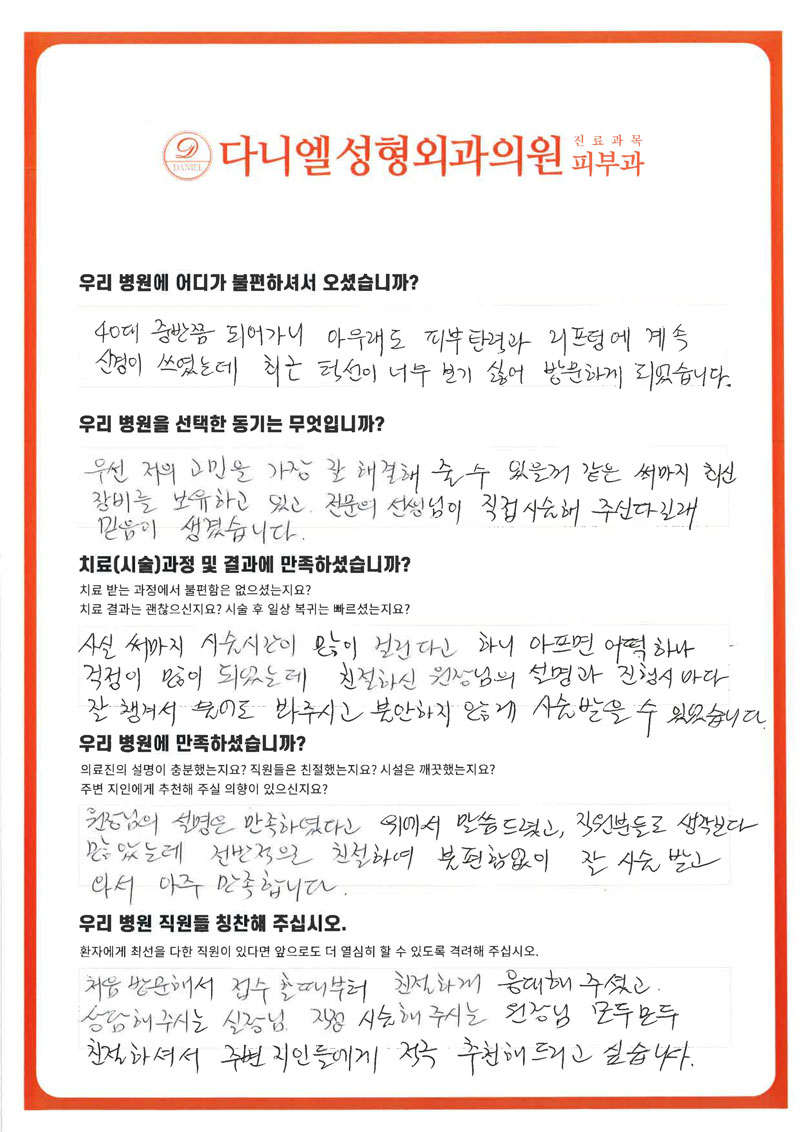 DANIEL
다니엘성형외과의원 진료과목 피부과
우리 병원에 어디가 불편하셔서 오셨습니까?
40대 중반쯤 되어가니 아무래도 피부탄력과 리프팅에 계속
신경이 쓰였는데 최근 턱선이 너무 보기 싫어 방문하게 되었습니다.
우리 병원을 선택한 동기는 무엇입니까?
우선 저의 고민을 가장 잘 해결해 줄 수 있을거 같은 써마지 최신
장비를 보유하고 있고. 전문의 선생님이 직접시술해 주신다길래
믿음이 생겼습니다.
치료(시술)과정 및 결과에 만족하셨습니까?
치료 받는 과정에서 불편함은 없으셨는지요?
치료 결과는 괜찮으신지요? 시술 후 일상 복귀는 빠르셨는지요?
사실 써마지 시술시간이 많이 걸린다고 하니 아프면 어떡하나
걱정이 많이 되었는데 친절하신 원장님의 설명과 진행시마다
잘 챙겨서 봐주시고 불안하지 않게 시술받을 수 있었습니다.
우리 병원에 만족하셨습니까?
의료진의 설명이 충분했는지요? 직원들은 친절했는지요? 시설은 깨끗했는지요?
주변 지인에게 추천해 주실 의향이 있으신지요?
원장님의 설명은 만족하였다고 위에서 말씀드렸고, 직원분들도 생각보다
많았는데 전반적으로 친절하여 불편함없이 잘 시술 받고
와서 아주 만족합니다.
우리 병원 직원들 칭찬해 주십시오.
환자에게 최선을 다한 직원이 있다면 앞으로도 더 열심히 할 수 있도록 격려해 주십시오.
처음 방문해서 접수 할때부터 친절하게 응대해 주셨고.
상담해주시는 실장님. 직접 시술해 주시는 원장님 모두모두
친절하셔서 주변 지인들에게 적극 추천해드리고 싶습니다.